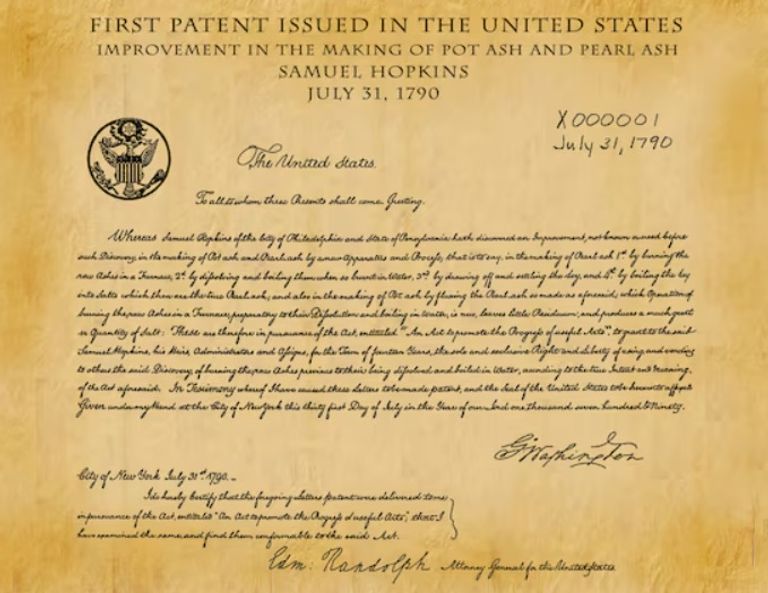 FIRST PATENT ISSUED IN THE UNITED STATES
IMPROVEMENT IN THE MAKING OF POT ASH AND PEARL ASH
SAMUEL HOPKINS
JULY 31, 1790
X000001
July 31, 1790
The United States.
To all to whom these Presents shall come, Greeting.
Whereas Samuel Hopkins of the City of Philadelphia and State of Pensylvania hath discovered an Improvement, not known or used before
such Discovery, in the making of Pot ash and Pearl ash by a new Apparatus and Process; that is to say, in the making of Pearl ash 1st. by burning the
raw Ashes in a Furnace, 2d. by dissolving and boiling them when so burnt in Water, 3rd. by drawing off and settling the Ley, and 4th. by boiling the Ley
into Salts which then are the true Pearl ash; and also in the making of Pot ash by fluxing the Pearl ash so made as aforesaid; which Operation of
burning the raw Ashes in a Furnace, preparatory to their Dissolution and boiling in Water, is new, leaves little Residuum; and produces a much greater
Quantity of Salt: These are therefore in pursuance of the Act, entituled "An Act to promote the Progress of useful Arts", to grant to the said
Samuel Hopkins, his Heirs, Administrators and Assigns, for the Term of fourteen Years, the sole and exclusive Right and Liberty of using and vending
to others the said Discovery, of burning the raw Ashes previous to their being dissolved and boiled in Water, according to the true Intent and Meaning
of the Act aforesaid. In Testimony whereof I have caused these Letters to be made patent, and the Seal of the United States to be hereunto affixed.
Given under my Hand at the City of New York this thirty first Day of July in the Year of our Lord one thousand seven hundred & Ninety.
G. Washington
City of New York July 31st 1790.
I do hereby Certify that the foregoing Letters patent were delivered to me
in pursuance of the Act, entituled "An Act to promote the Progress of useful Arts"; that I
have examined the same, and find them conformable to the said Act.
Edm: Randolph Attorney General for the United States.